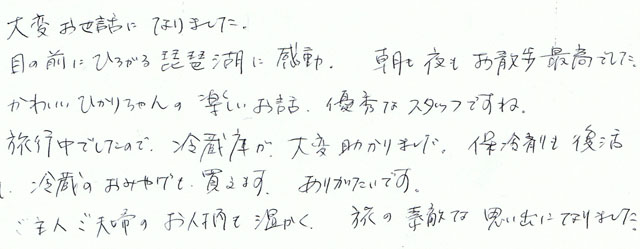 大変お世話になりました。
目の前にひろがる琵琶湖に感動。 朝も夜もお散歩最高でした。
かわいいひかりちゃんの楽しいお話、優秀なスタッフですね。
旅行中でしたので、冷蔵庫が大変助かりました。保冷剤も復活
し、冷蔵のおみやげも買えます。ありがたいです。
ご主人ご夫婦のお人柄も温かく、旅の素敵な思い出になりました